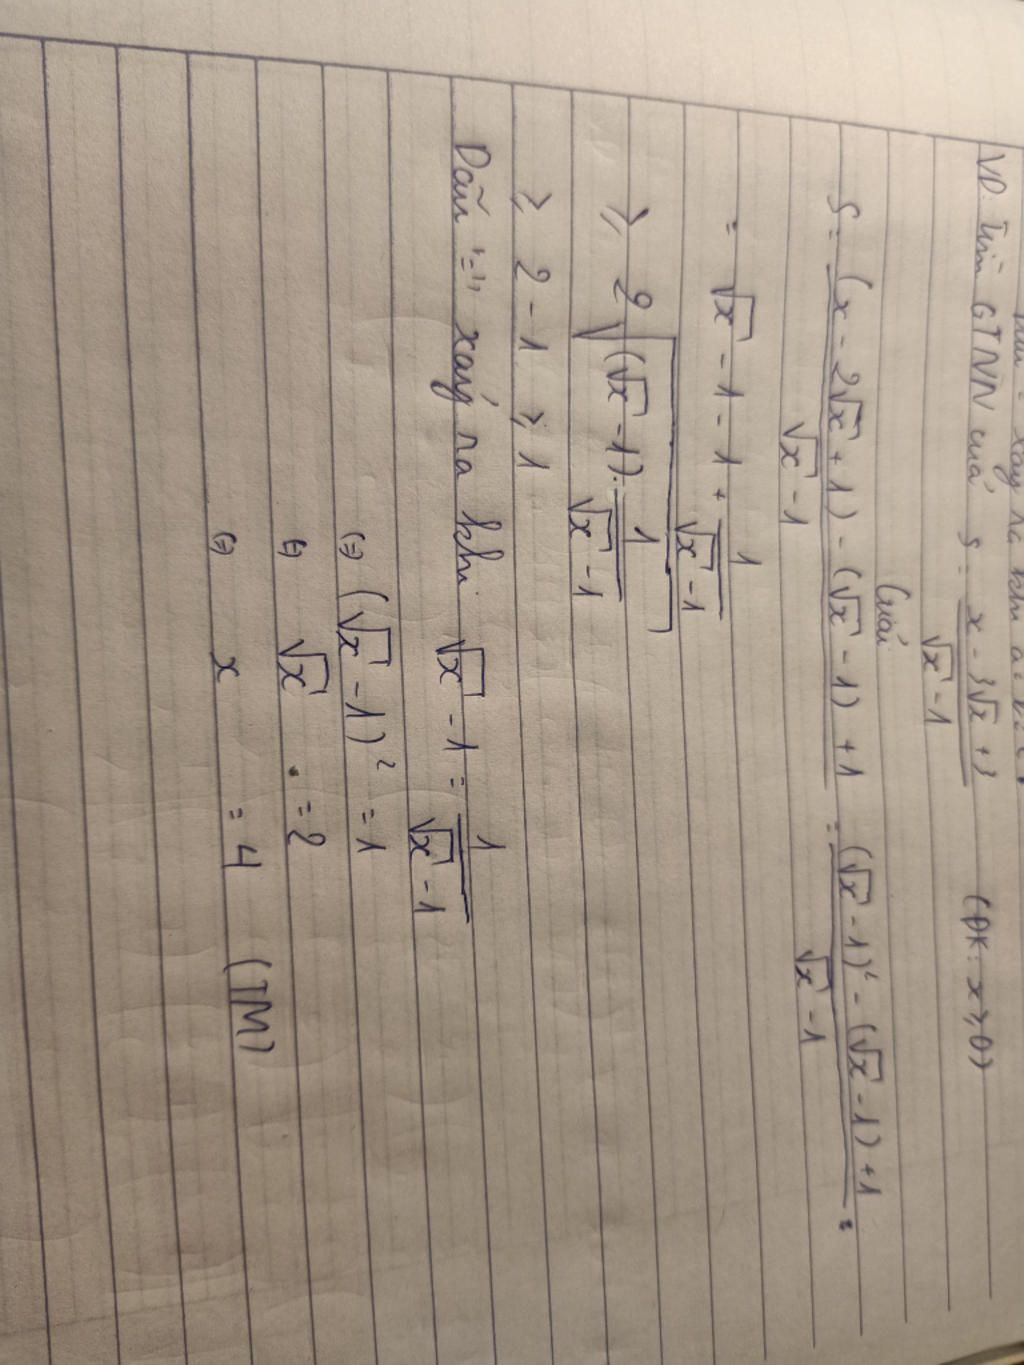 xảy ra khi a = b
VD: Tìm GTNN của S = (x - 3√x + 3)/(√x - 1) (ĐK: x ≥ 0)
Giải
S = ((x - 2√x + 1) - (√x - 1) + 1)/(√x - 1) = ((√x - 1)² - (√x - 1) + 1)/(√x - 1) =
= √x - 1 - 1 + 1/(√x - 1)
≥ 2√[(√x - 1) . 1/(√x - 1)]
≥ 2 - 1 ≥ 1
Dấu "=" xảy ra khi √x - 1 = 1/(√x - 1)
(=) (√x - 1)² = 1
(=) √x = 2
(=) x = 4 (TM)